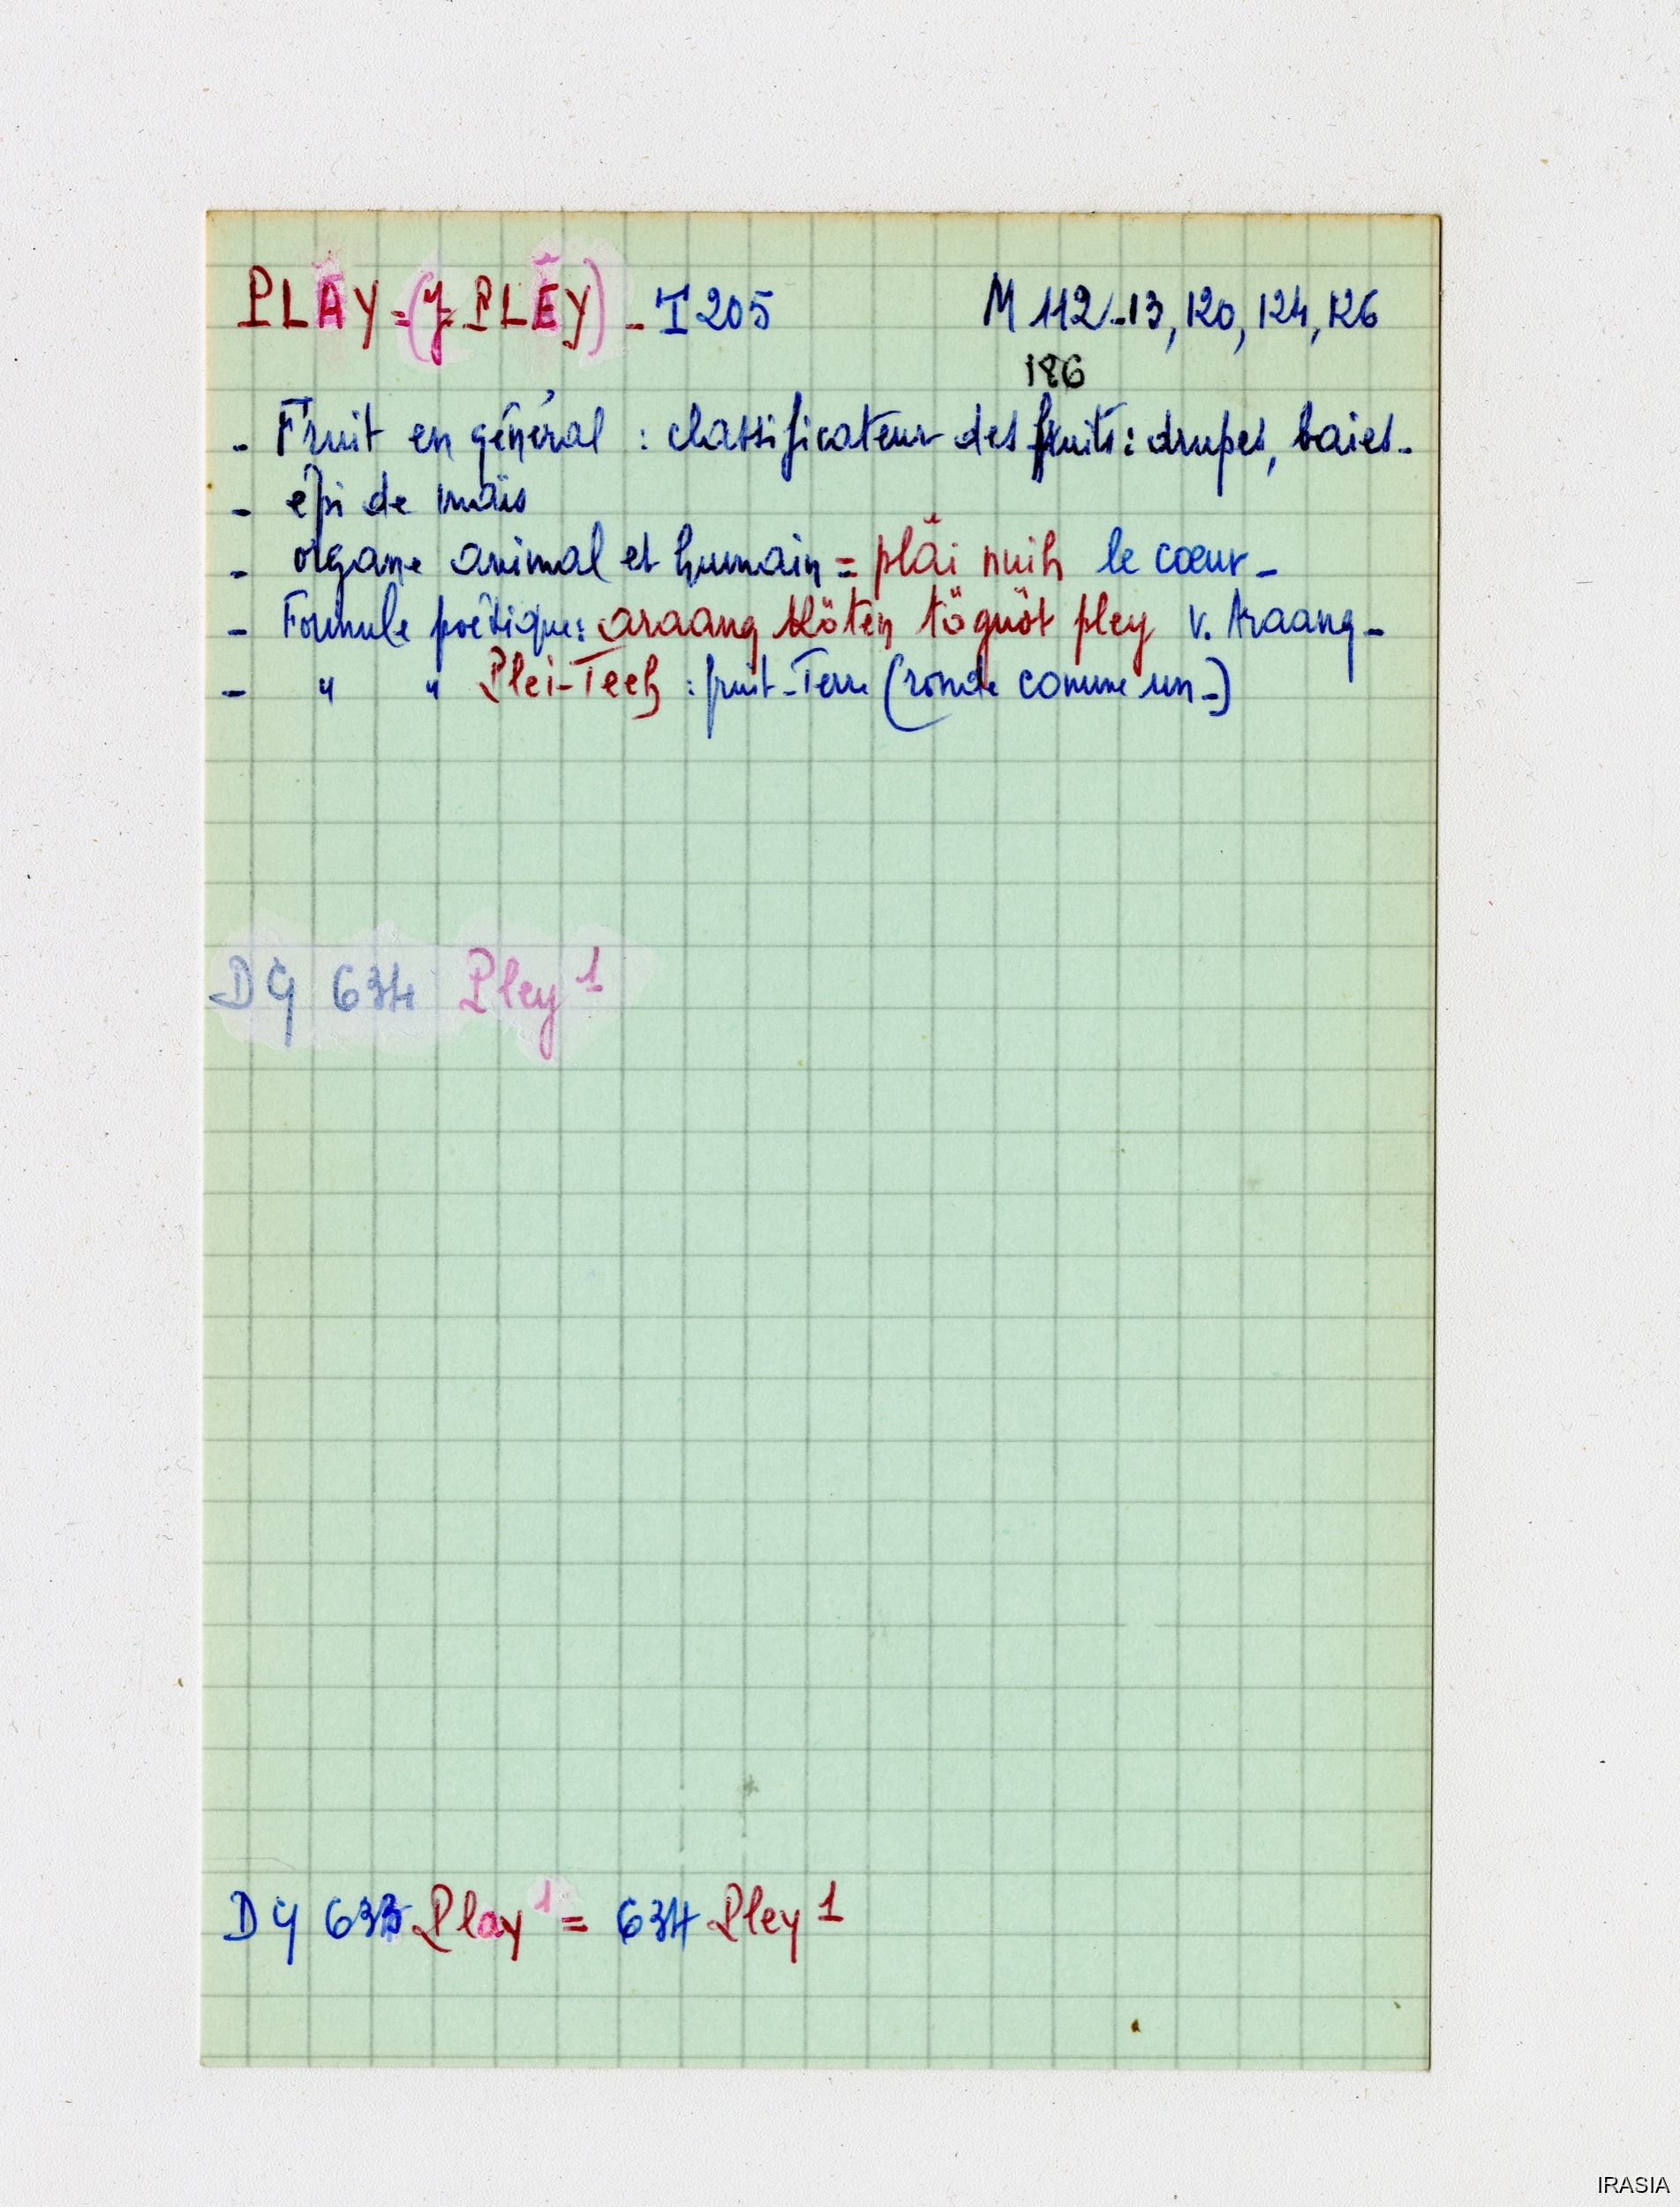 PLAY = (J PLEY) - T 205 M 112-13, 120, 124, 126
186
- Fruit en général : classificateur des fruits : drupes, baies -
- épi de maïs
- organe animal et humain = plăi nuih le cœur -
- Formule poétique : araang köteh tögŭöt pley v. Araang -
- " " Plei-Teeh : fruit-Terre (ronde comme un -)
DG 634 Pley 1
DG 633 Play 1 = 634 Pley 1
IRASIA